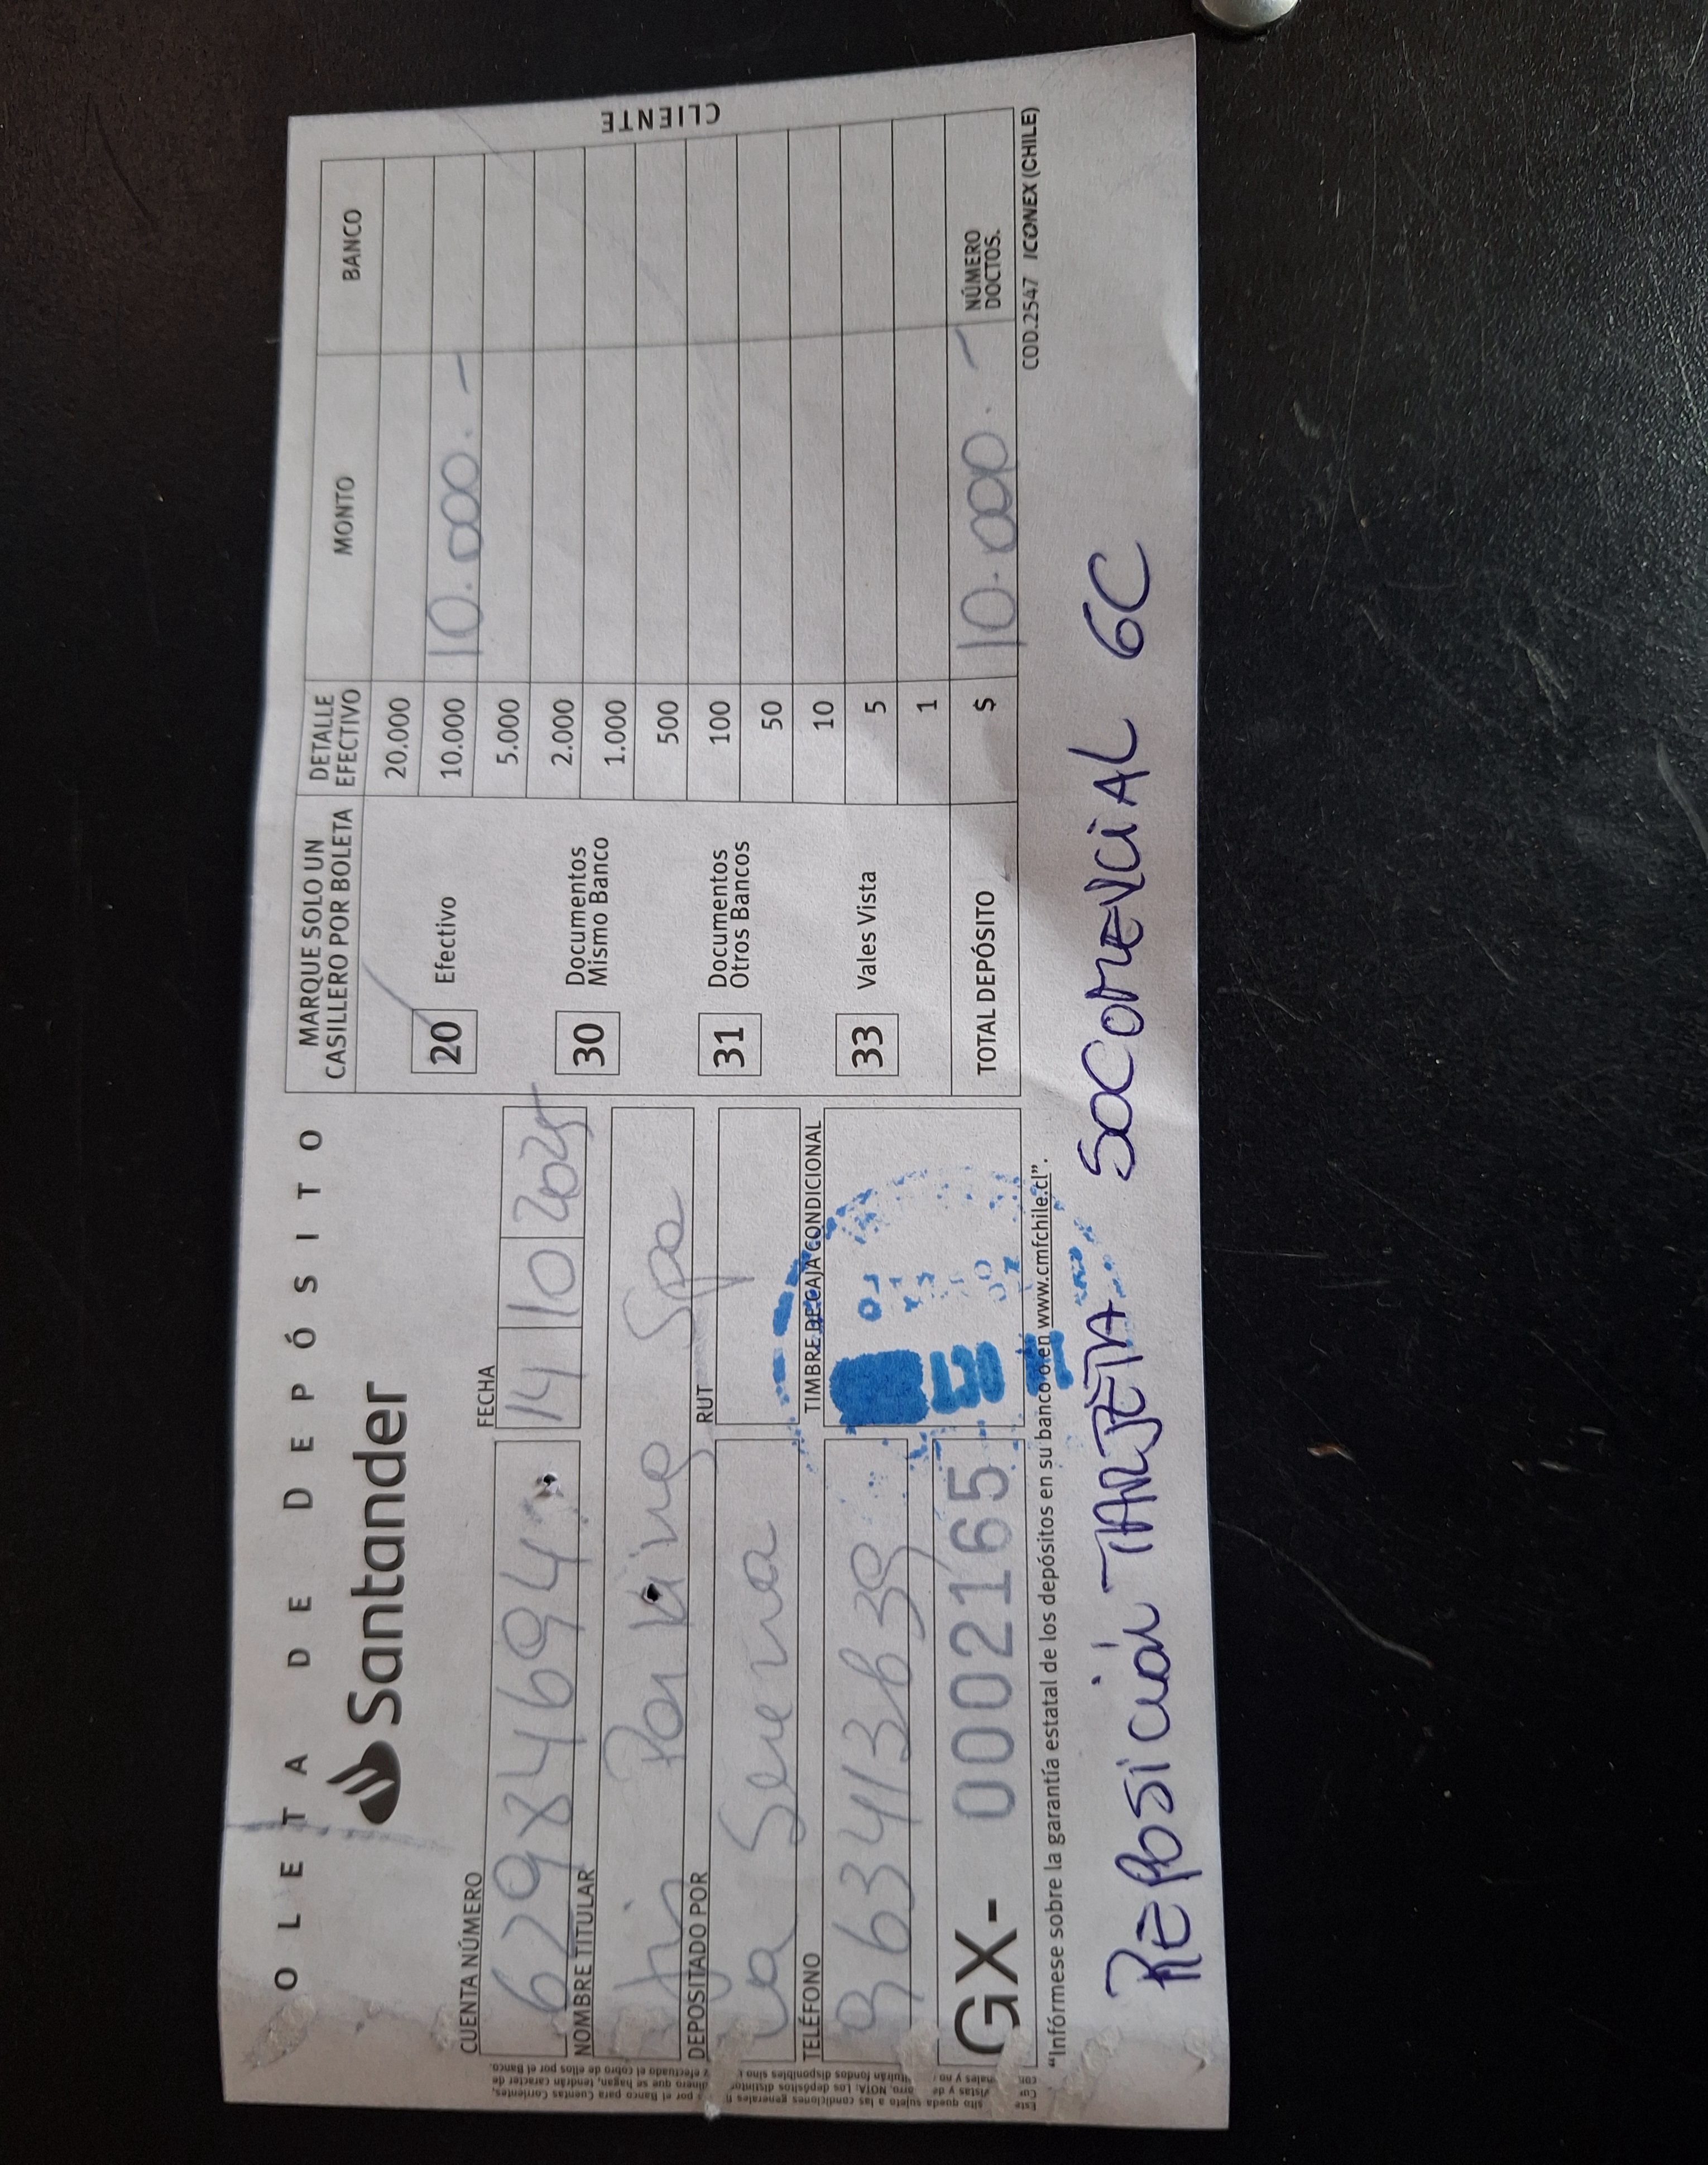 OLETA DE DEPÓSITO
Santander
CUENTA NÚMERO
62984694
FECHA
14 10 2025
NOMBRE TITULAR
Parking Spa
DEPOSITADO POR
La Serena
RUT
TELÉFONO
TIMBRE DE CAJA CONDICIONAL
GX- 0002165
MARQUE SOLO UN
CASILLERO POR BOLETA
20 Efectivo
30 Documentos
Mismo Banco
31 Documentos
Otros Bancos
33 Vales Vista
TOTAL DEPÓSITO
DETALLE
EFECTIVO
MONTO
BANCO
20.000
10.000 10.000.-
5.000
2.000
1.000
500
100
50
10
5
1
$ 10.000.-
NÚMERO
DOCTOS.
CLIENTE
"Infórmese sobre la garantía estatal de los depósitos en su banco o en www.cmfchile.cl".
COD.2547 ICONEX (CHILE)
REPOSICIÓN TARJETA SOCOMERCIAL 6C